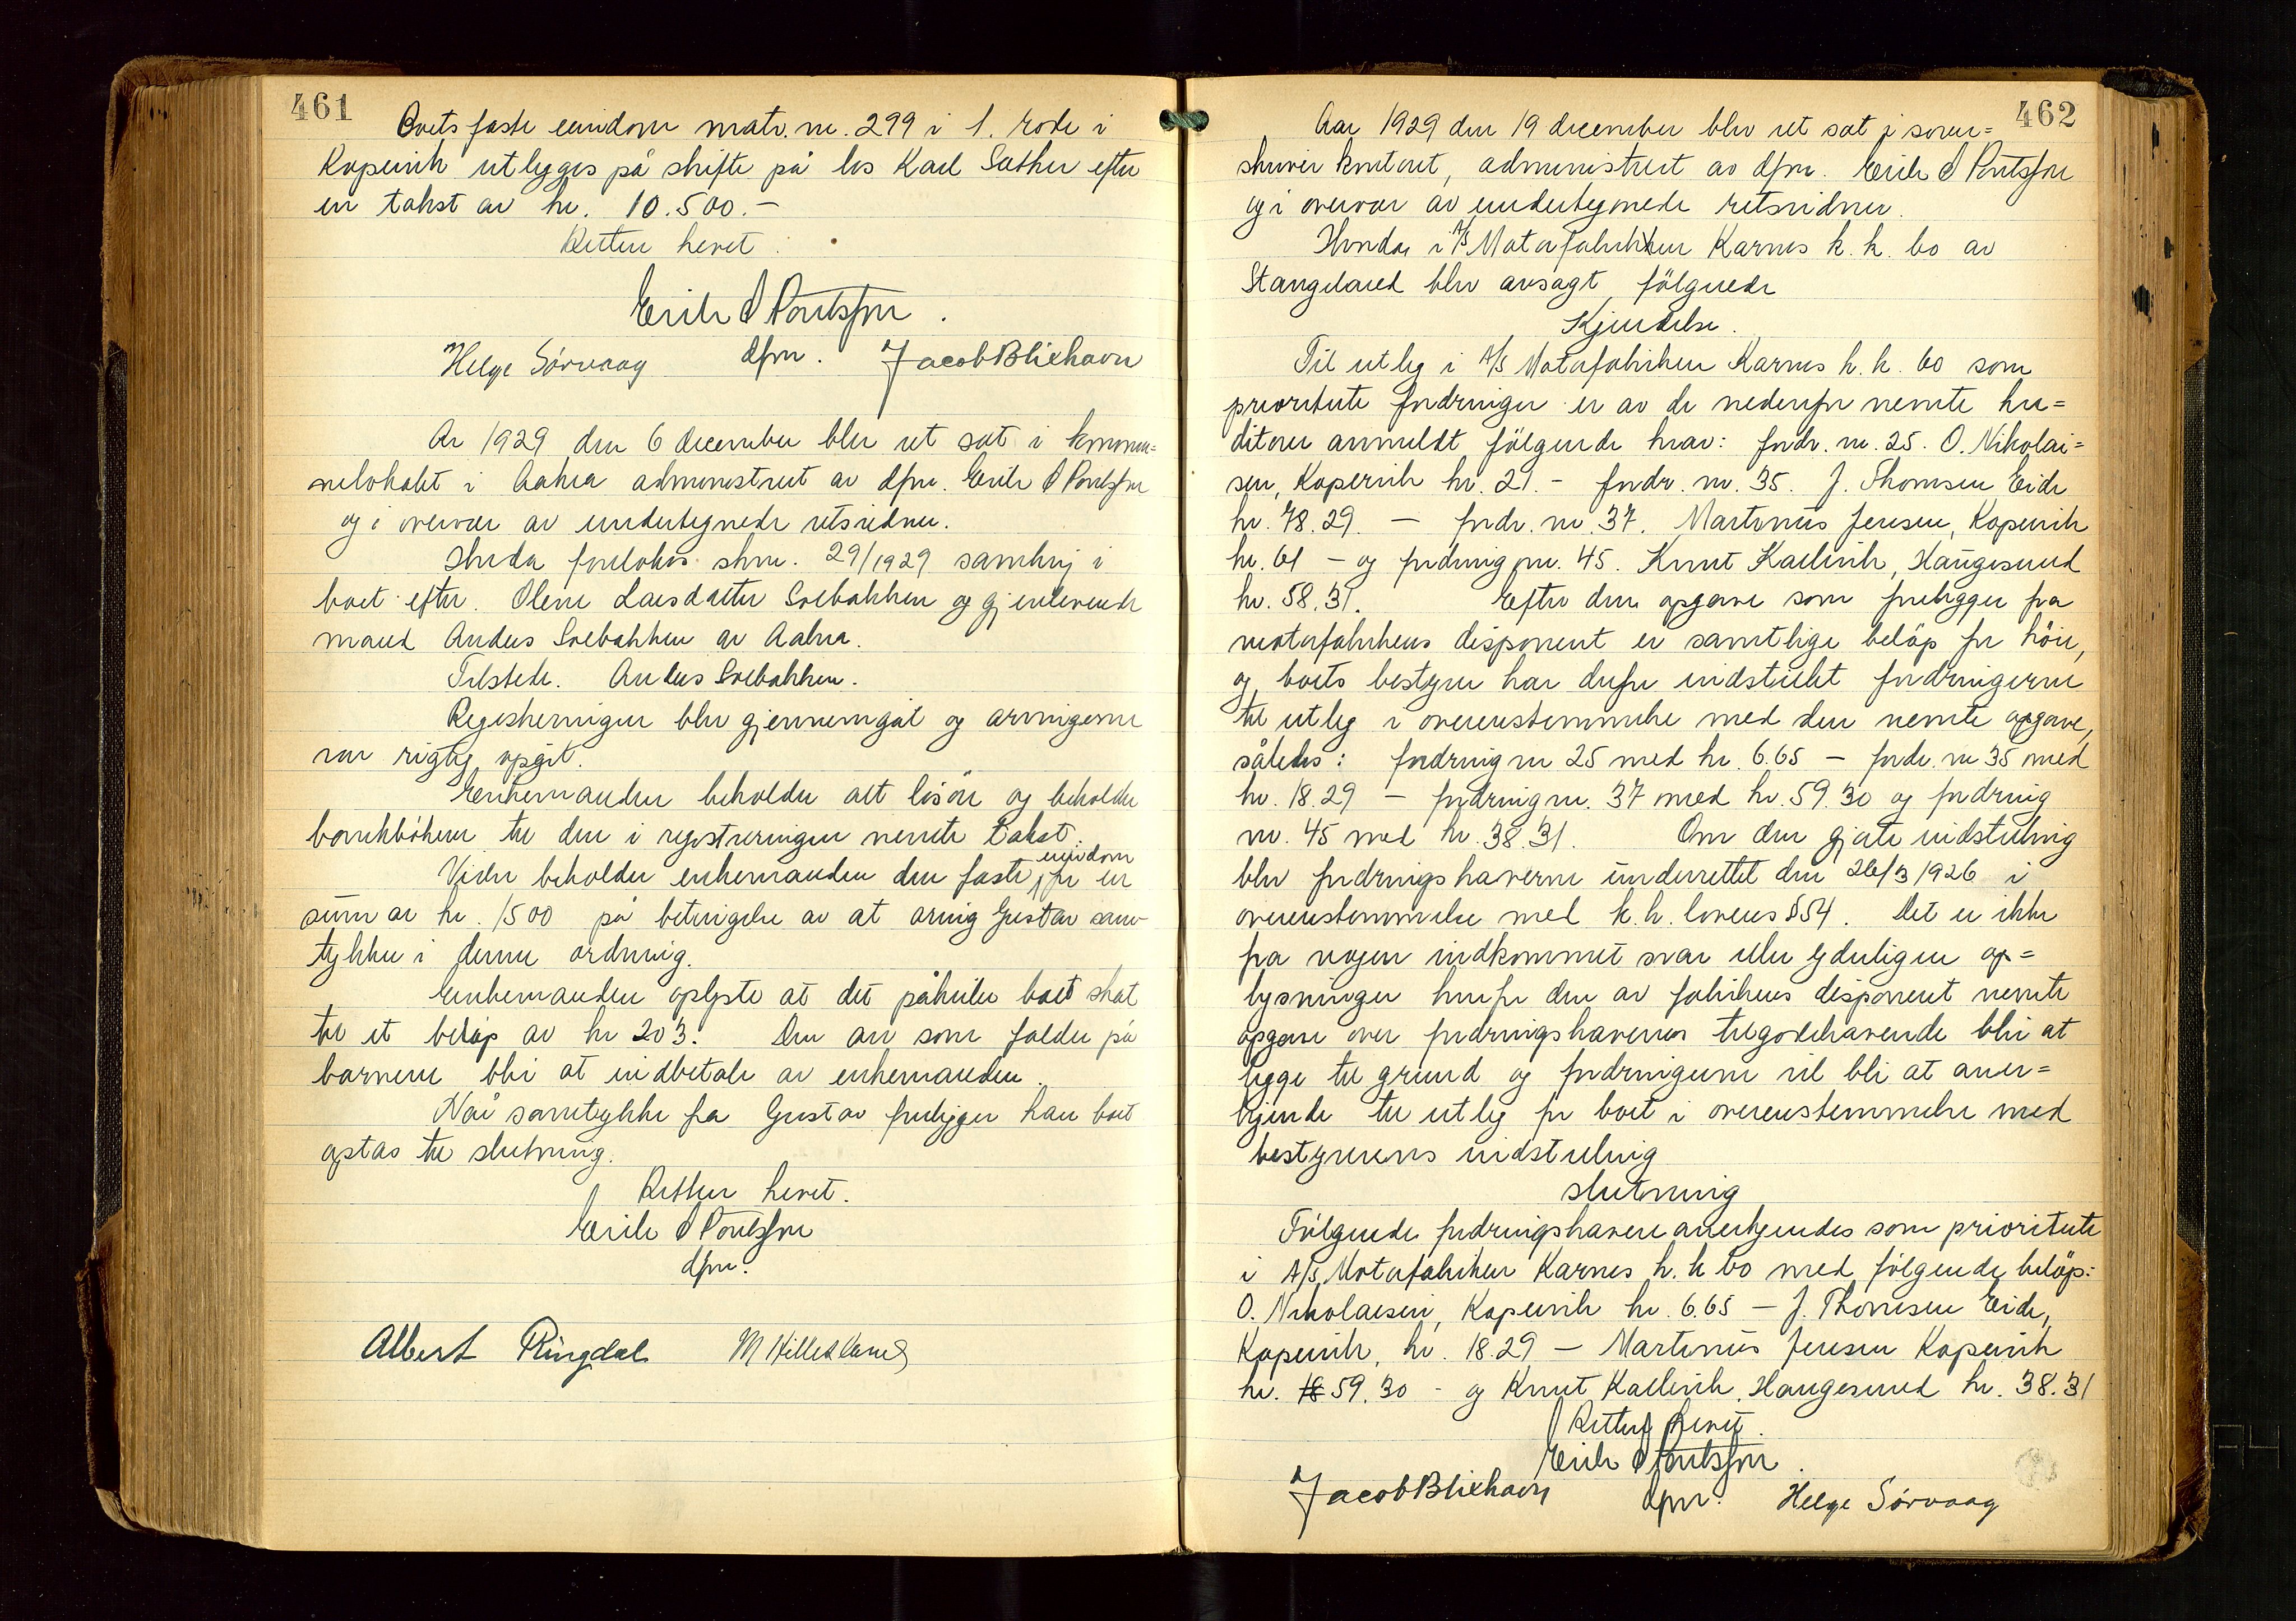 461
Boets faste eiendom matr. nr. 299 i 1. rode i
Kopervik utlegges på skifte på los Karl Sæther efter
en takst av kr. 10.500.-
Retten hevet.
Erik S Poulsson.
dfm.
Helge Sörvaag
Jacob Blikhavn
År 1929 den 6 december blev ret sat i kommu=
nelokalet i Aakra administrert av dfm. Erik S Poulsson
og i overvær av undertegnede retsvidner.
Hvorda foretokes skm. 29/1929 samkvj i
boet efter. Oline Larsdatter Svebakken og gjenlevende
mand Anders Svebakken av Aakra.
Tilstede. Anders Svebakken.
Registreringen blev gjennemgåt og arvingerne
var rigtig opgit.
Enkemanden beholder alt lösöre og beholder
bankböken til den i registreringen nevnte takst.
Vider beholder enkemanden den faste eiendom for en
sum av kr. 1500 på betingelse av at arving Gustav sam-
tykker i denne ordning.
Enkemanden oplyste at det påhviler boet skat
til et belöp av kr 203. Den arv som falder på
barnene blir at indbetale av enkemanden.
Når samtykke fra Gustav foreligger kan boet
optas til slutning.
Retten hevet.
Erik S Poulsson
dfm.
Albert Ringdal M Hillesland
462
Aar 1929 den 19 december blev ret sat i soren=
skriver kontoret, administrert av dfm. Erik S Poulsson
og i overvær av undertegnede retsvidner.
Hvorda i A/S Motorfabrikken Karnes k. k. bo av
Stangeland blev avsagt følgende
Kjendelse.
Til utleg i A/S Motorfabriken Karnes k. k. bo som
prioriterte fordringer er av de nedenfor nevnte kre=
ditorer anmeldt følgende krav: fordr. nr. 25. O. Nikolai=
sen, Kopervik kr. 21.- fordr. nr. 35. J. Thomsen Eide
kr. 78.29 — fordr. nr. 37. Martinus Jensen, Kopervik
kr. 61 — og fordring nr. 45. Knut Kallevik, Haugesund
kr. 58.31. Efter den opgave som foreligger fra
motorfabrikens disponent er samtlige belöp for höie,
og boets bestyrer har derfor indstillet fordringerne
til utleg i overenstemmelse med den nevnte opgave,
således: fordring nr 25 med kr. 6.65 — fordr. nr 35 med
kr. 18.29 — fordring nr. 37 med kr. 59.30 og fordring
nr. 45 med kr. 38.31. Om den gjorte indstilling
blev fordringshaverne underrettet den 26/3 1926 i
overenstemmelse med k.k. lovens § 54. Det er ikke
fra nogen indkommet svar eller yderligere op=
lysninger hvorfor den av fabrikens disponent nevnte
opgave over fordringshavernes tilgodehavende blir at
legge til grund og fordringerne vil bli at aner=
kjende til utleg for boet i overenstemmelse med
bestyrerens indstilling
slutning
Følgende fordringshavere anerkjendes som prioriterte
i A/S Motorfabriken Karnes k. k bo med følgende belöp:
O. Nikolaisen, Kopervik kr. 6.65 — J. Thomsen Eide,
Kopervik, kr. 18.29 — Martinus Jensen Kopervik
kr. 59.30 - og Knut Kallevik, Haugesund kr. 38.31
Retten hevet.
Erik S Poulsson.
Jacob Blikhavn dfm. Helge Sörvaag